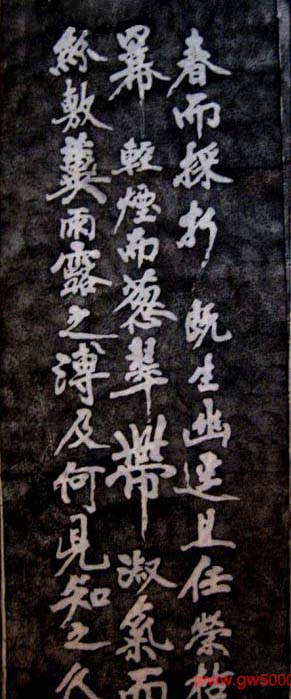 春而採折既生幽远且任榮枯
羃輕煙而葱翠帶淑氣而
絲敷冀雨露之溥及何見知之久
www.gw5000